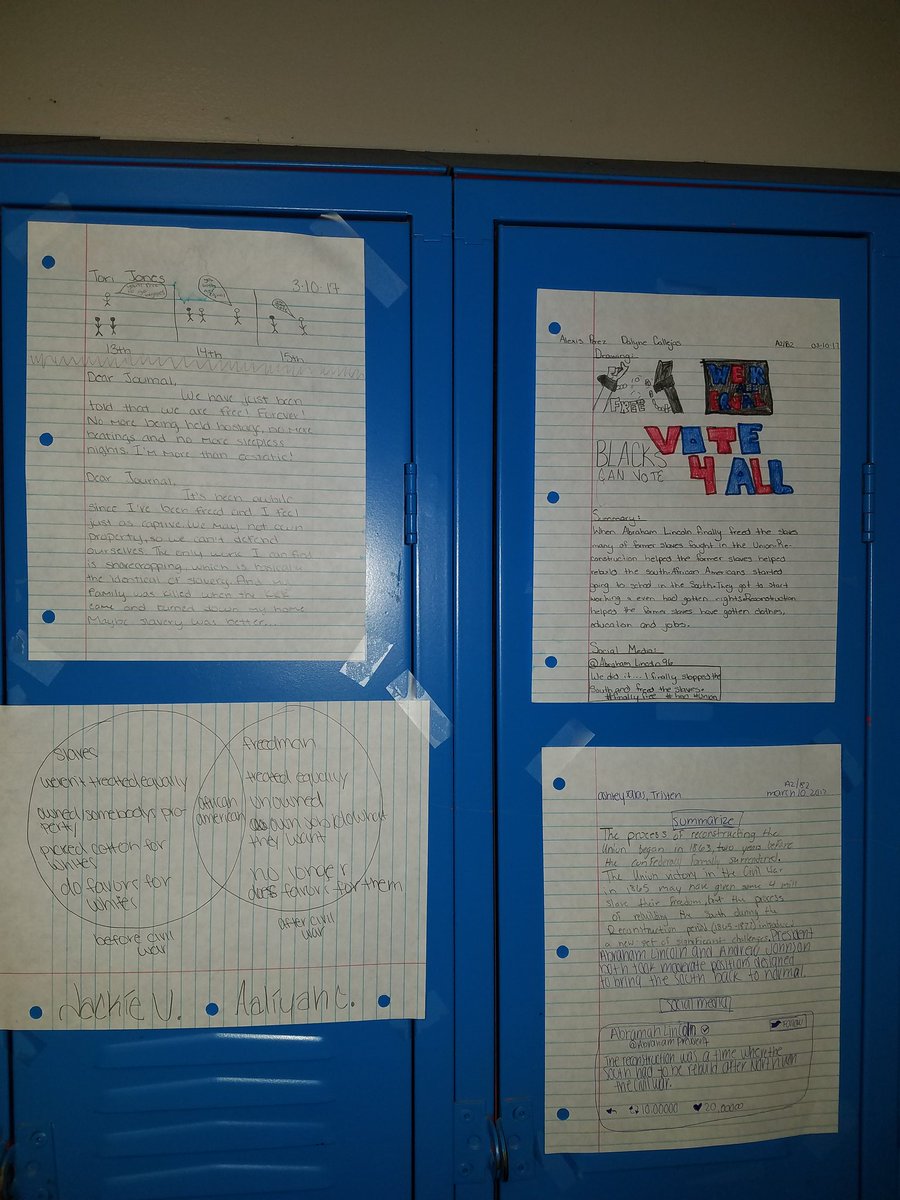 Tori Jones
3-10-17
13th
14th
15th
Dear Journal,
We have just been
told that we are free! Forever!
No more being held hostage, no more
beatings and no more sleepless
nights. I'm more than ecstatic!
Dear Journal,
It's been awhile
since I've been freed and I feel
just as captive. We may not own
property, so we can't defend
ourselves. The only work I can find
is sharecropping, which is basically
the identical of slavery. And my
family was killed when the KKK
came and burned down my home
Maybe slavery was better...
slaves
weren't treated equally
owned/somebodys pro-
perty
picked cotton for
whites
do favors for
whites
before civil
war
african
american
freedman
treated equally
unowned
own so do what
they want
no longer
does favors for them
after civil
war
Jackie V. Aaliyah C.
Alexis Perez Dalyne Callejas A2/B2 03-10-17
Drawing:
FREE
WE R
EQUAL
BLACKS
CAN VOTE
VOTE
4 ALL
Summary:
When Abraham Lincoln finally freed the slaves
many of former slaves fought in the Union. Re-
construction helped the former slaves helped
rebuild the south. African Americans started
going to school in the South. They got to start
working & even had gotten rights. Reconstruction
helps the former slaves have gotten clothes,
education and jobs.
Social Media:
@Abraham Lincoln96
We did it... I finally stopped the
South and freed the slaves.
#finally free #union
A2/B2
ashley, Tristen
march 10, 2017
Summarize
The process of reconstructing the
Union began in 1863, two years before
the confederacy formally surrendered.
The Union victory in the Civil War
in 1865 may have given some 4 mill
slave their freedom, but the process
of rebuilding the South during the
Reconstruction period (1865-1877) introduced
a new set of significant challenges. President
Abraham Lincoln and Andrew Johnson
both took moderate positions designed
to bring the South back to normal.
Social media
Abramah Lincoln
Follow
@Abraham President
The reconstruction was a time where the
South had to be rebuild after North win
the civil war.
10.00000 20.00000